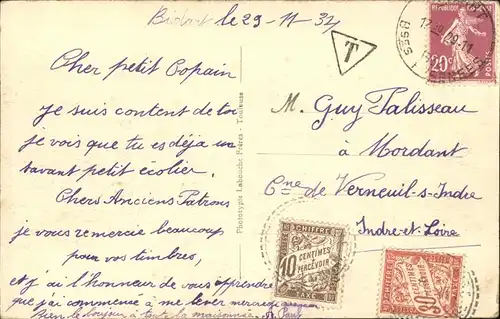 Bidart le 29-11-32
T
Cher petit Copain
Je suis content de toi
je vois que tu es déja un
savant petit écolier.
Chers Anciens Patrons
je vous remercie beaucoup
pour vos timbres,
et j'ai l'honneur de vous apprendre
que j'ai commencé à me lever
Bien le bonjour à toute la maisonnée. Paul
Phototypie Labouche Frères - Toulouse
M. Guy Palisseau
à Mordant
Cne de Verneuil-s-Indre
Indre-et-Loire
20c
12 29-11
BSES
CHIFFRE
10 CENTIMES À PERCEVOIR
TAXE
CHIFFRE
30